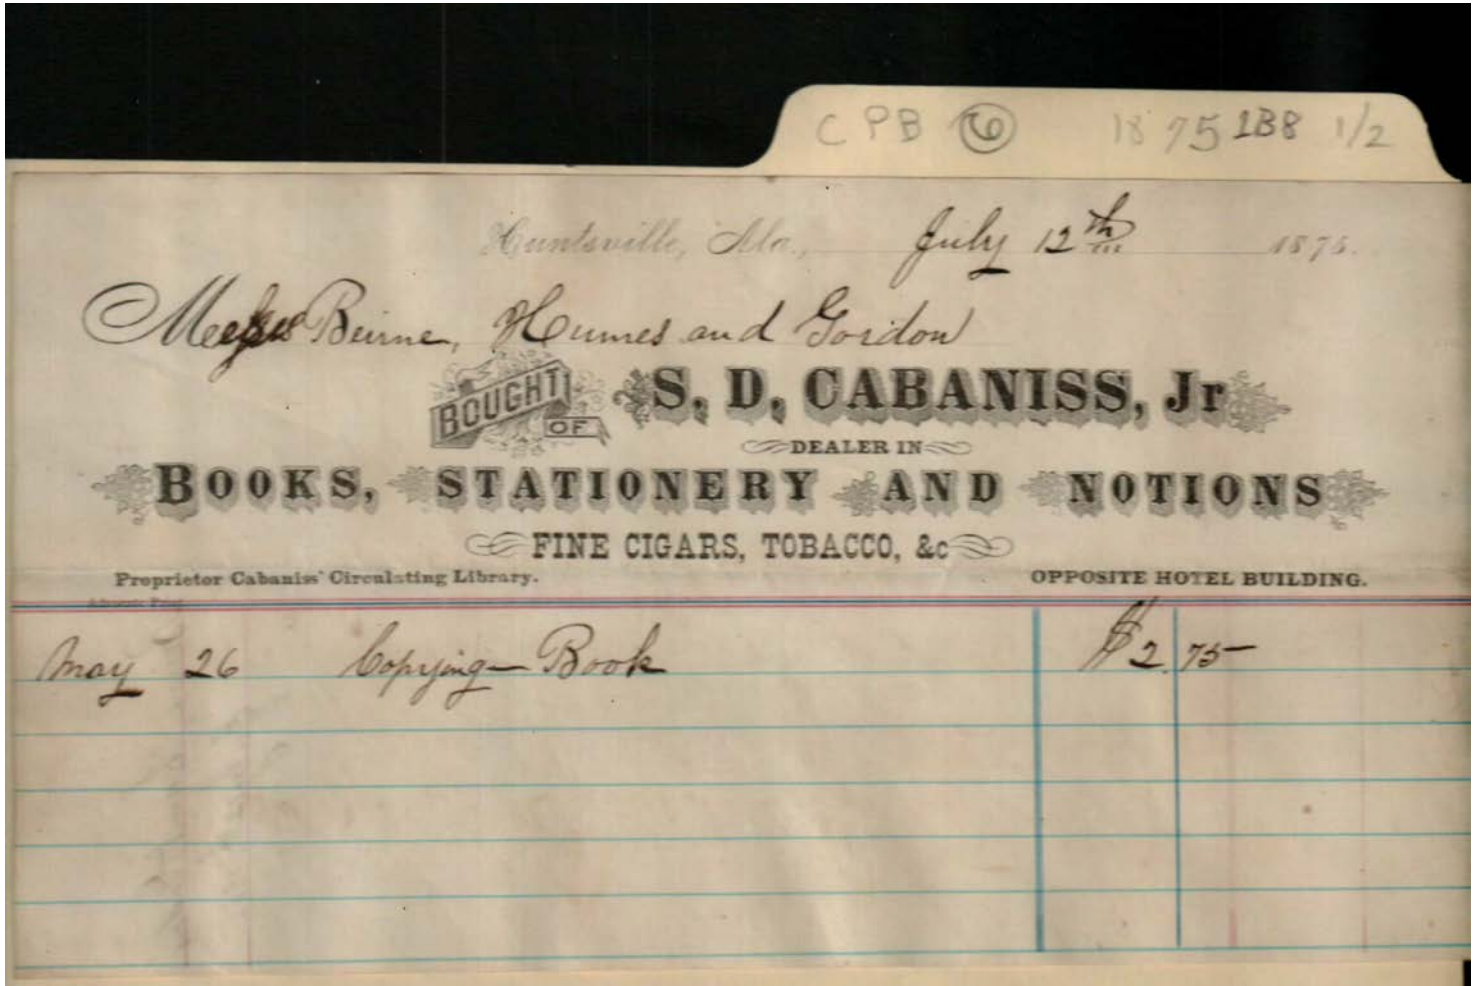 C P B 6 1875 1B8 1/2
Huntsville, Ala., July 12th 1875.
Messrs Beirne, Humes and Gordon
BOUGHT OF S. D. CABANISS, Jr
DEALER IN
BOOKS, STATIONERY AND NOTIONS
FINE CIGARS, TOBACCO, &c
Proprietor Cabaniss' Circulating Library. OPPOSITE HOTEL BUILDING.
Advocate Print.
May 26 Copying Book $2.75